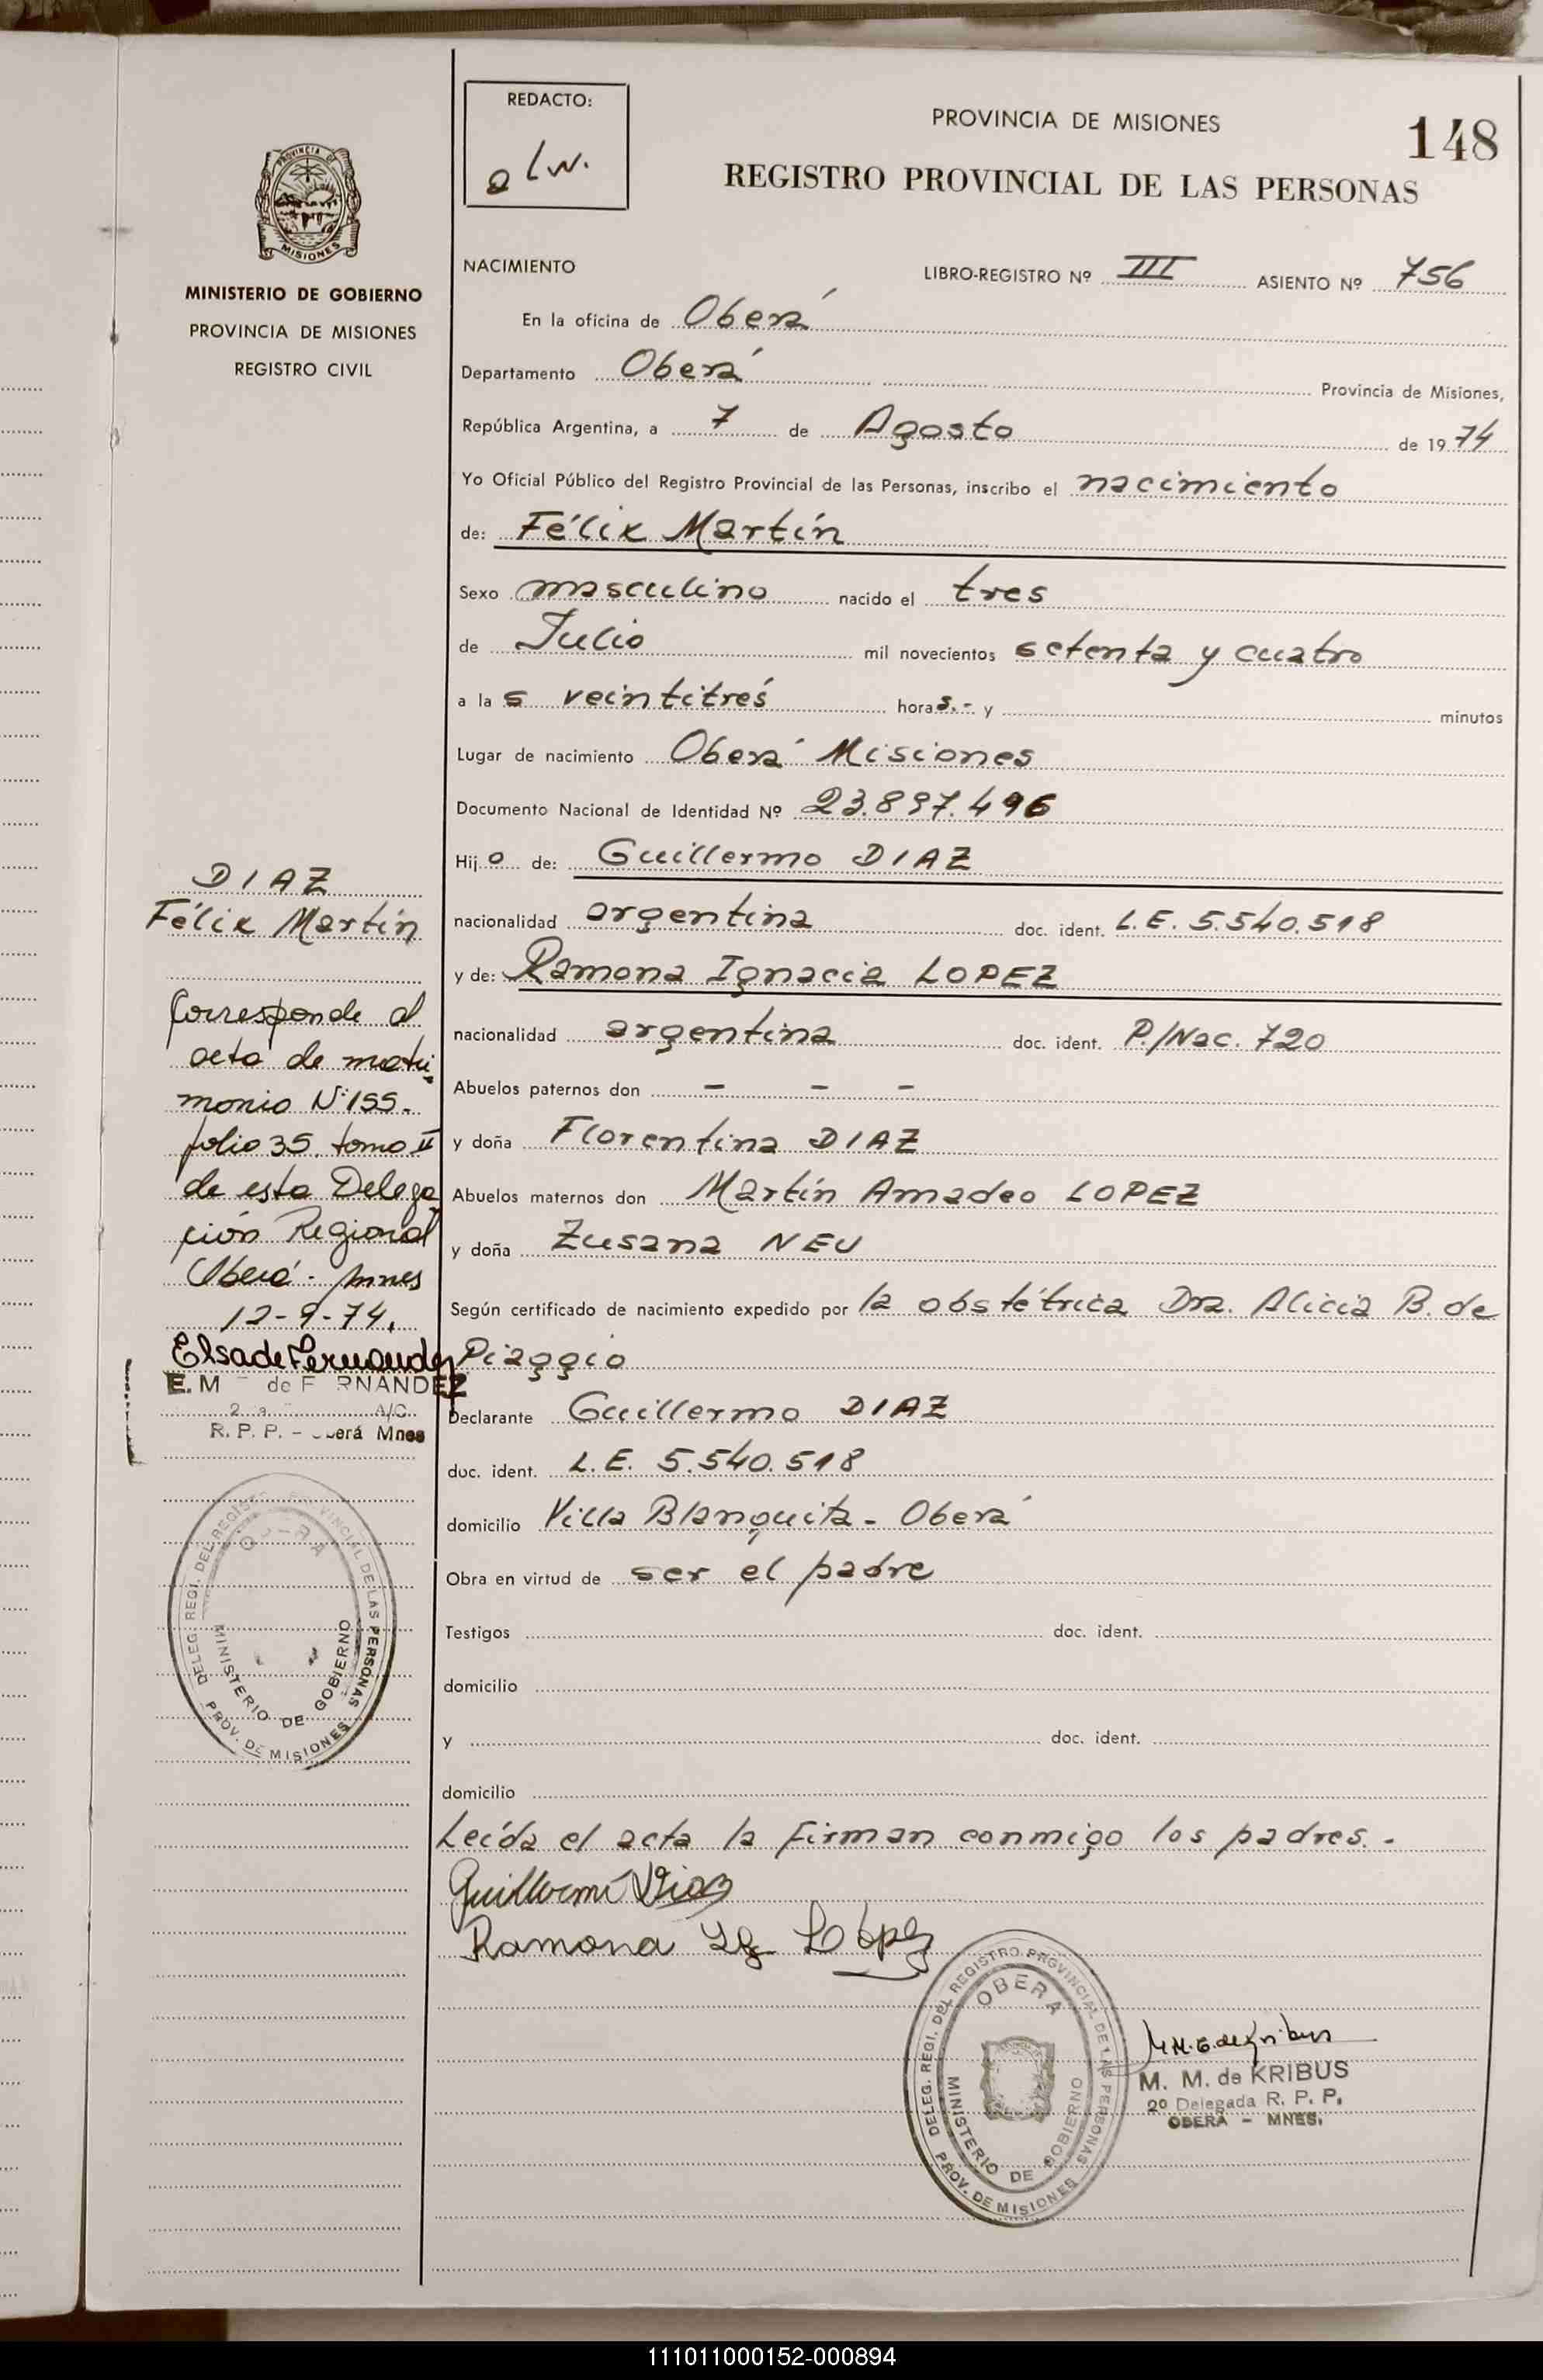 REDACTO:
PROVINCIA DE MISIONES
148
REGISTRO PROVINCIAL DE LAS PERSONAS
PROVINCIA DE
MISIONES
MINISTERIO DE GOBIERNO
PROVINCIA DE MISIONES
REGISTRO CIVIL
NACIMIENTO LIBRO-REGISTRO Nº III ASIENTO Nº 756
En la oficina de Oberá
Departamento Oberá Provincia de Misiones,
República Argentina, a 7 de Agosto de 1974
Yo Oficial Público del Registro Provincial de las Personas, inscribo el nacimiento
de: Félix Martín
Sexo masculino nacido el tres
de Julio mil novecientos setenta y cuatro
a las veintitrés horas.- y minutos
Lugar de nacimiento Oberá Misiones
Documento Nacional de Identidad Nº 23.897.496
Hijo de: Guillermo DIAZ
nacionalidad argentina doc. ident. L.E. 5.540.518
y de: Ramona Ignacia LOPEZ
nacionalidad argentina doc. ident. P./Nac. 720
Abuelos paternos don - - -
y doña Florentina DIAZ
Abuelos maternos don Martín Amadeo LOPEZ
y doña Zusana NEU
Según certificado de nacimiento expedido por la obstétrica Dra. Alicia B. de
Piaggio
Declarante Guillermo DIAZ
doc. ident. L.E. 5.540.518
domicilio Villa Blanquita - Oberá
Obra en virtud de ser el padre
Testigos doc. ident.
domicilio
y doc. ident.
domicilio
Leída el acta la firman conmigo los padres.-
Guillermi Diaz
Ramona Ig López
DIAZ
Félix Martín
Corresponde al
acta de matri
monio Nº 155.
folio 35. tomo II
de esta Delega
ción Regional
Oberá - Mnes
12-9-74.
Elsa de Fernandez
E. M de F RNANDEZ
A/C.
R. P. P. - erá Mnes
DELEG. REGI. DEL REGIS VINCIAL DE LAS PERSONAS
MINISTERIO DE GOBIERNO
PROV. DE MISIONES
DELEG. REGI. DEL REGISTRO PROVINCIAL DE LAS PERSONAS
OBERA
MINISTERIO DE GOBIERNO
PROV. DE MISIONES
M. M. de KRIBUS
2º Delegada R. P. P.
OBERA - MNES.
111011000152-000894